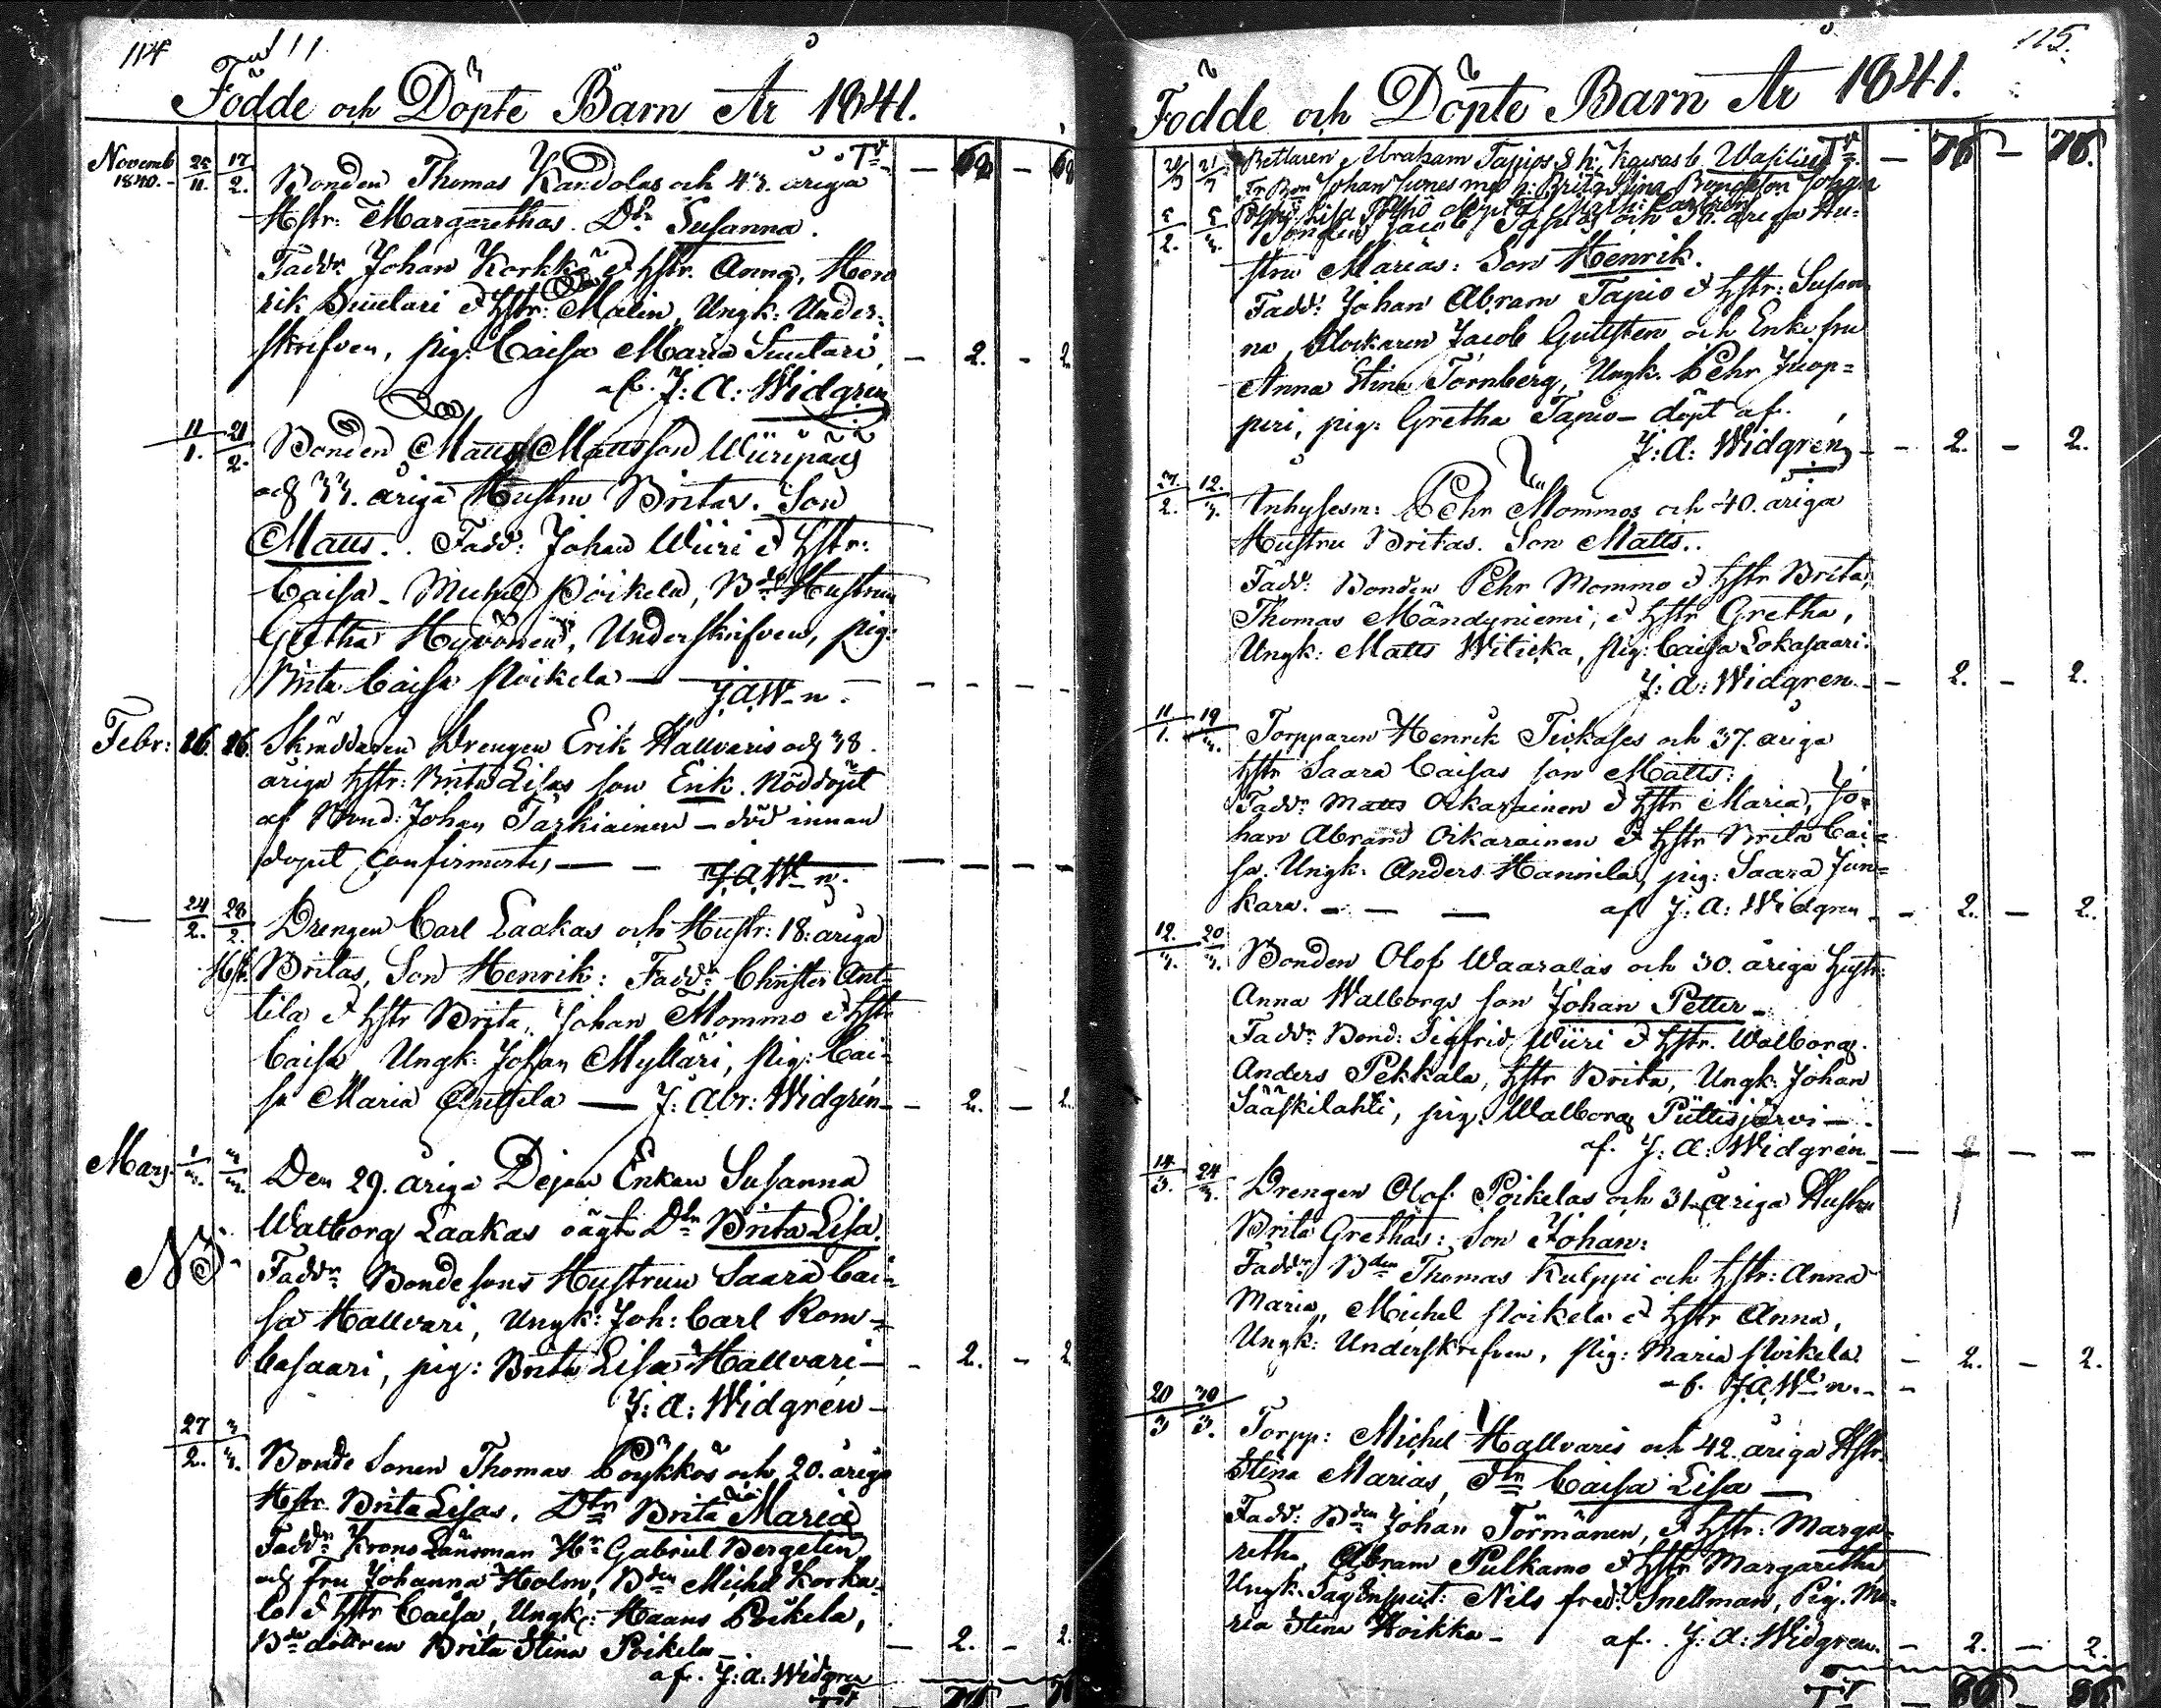 114
Födde och Döpte Barn År 1841.
Novemb 1840. 25/11. 17/2. Bonden Thomas Kandolas och 43. åriga Tr. — 68 — 68
Hstr: Margarethas. Dtr Susanna.
Faddr Johan Korkko & Hstr. Anna, Hen
rik Suutari & Hstr: Malin, Ungk: Under-
skrifven, pig: Caisa Maria Suutari, — 2. — 2
af. J: A: Widgren
11/1. 21/2. Bonden Matts Mattsson Wiiripääs
och 33. åriga Hustru Britas. Son
Matts.. Fadd: Johan Wiiri & Hstr:
Caisa - Michel Poikela, Bde Hustrun
Gretha Hyvönen, Underskrifven, pig:
Brita Caisa Poikela — J. A. W-n. - - - -
Febr: 26. 26. Skräddaren Drengen Erik Hallvaris och 38.
åriga Hstr: Brita Lisas son Erik. Nöddöpt
af Bond: Johan Tarkiainen — död innan
dopet confirmertes — — J. A. W-n. — — — —
— 24/2. 28/2. Drengen Carl Laakas och Hustr: 18: åriga
Hstr. Britas, Son Henrik: Faddr Christer Ant-
tila & Hstr Brita, Johan Mommo & Hstr
Caisa, Ungk: Johan Myllari, Pig: Cai-
sa Maria Anttila — J: Abr: Widgrén - - 2. — 2.
Mars. 1/3. 3/3. Den 29. åriga Dejan Enkan Susanna
Walborg Laakas oägt. Dtr Brita Lisa.
NB. Faddr Bondesons Hustrun Saara Cai-
sa Hallvari, Ungk: Joh: Carl Rom-
basaari, pig: Brita Lisa Hallvari — - 2. — 2
J: A: Widgrén —
27/2. 3/3. Bonde Sonen Thomas Pöykkös och 20. åriga
Hstr. Brita Lisas. Dtr Brita Maria
Faddr Krons Länsman Hr Gabriel Bergelin
och Fru Johanna Holm, Bden Michel Korka-
lo & Hstr Caisa, Ungk: Haans Poikela,
Bde dottren Brita Stina Poikela — — 2. — 2.
af. J: A: Widgren
115.
Födde och Döpte Barn År 1841.
Bettlaren Abraham Tapios & h: Kaisas b. Tr. — 76 — 76.
5/2. 5/3. Bonden Jacob Tapios och åriga Hu-
strus Marias: Son Henrik.
Fadd: Johan Abram Tapio & Hstr: Susan
na, Klockaren Jacob Gullsten och Enke fru
Anna Stina Törnberg, Ungk. Pehr Juop-
peri, pig: Gretha Tapio — döpt af.
J: A: Widgren - - 2. — 2.
27/2. 12./3. Inhysesm: Pehr Mommos och 40. åriga
Hustru Britas. Son Matts..
Fadd: Bonden Pehr Mommo & Hstr Brita,
Thomas Mändyniemi, & Hstr Gretha,
Ungk: Matts Witicka, Pig: Caisa Lokasaari.
J: A: Widgren. - - 2. — 2.
11/1. 19/3. Torpparen Henrik Tickases och 37. åriga
Hstr Saara Caisas son Matts:
Faddr Matts Oikarainen & Hstr Maria, Jo-
han Abram Oikarainen & Hstr Brita Cai-
sa. Ungk: Anders Hannila, pig: Saara Jun-
kara. — — — af J: A: Widgren - - 2. — 2.
12./3. 20/3. Bonden Olof Waaralas och 30. åriga Hustr:
Anna Walborgs son Johan Petter —
Faddr Bond: Sigfrid Wiiri & Hstr. Walborg.
Anders Pekkala, Hstr Brita, Ungk: Johan
Sääskilahti, pig: Walborg Püttisjärvi — .
af. J: A: Widgrén — — — —
14/3. 24/3. Drengen Olof Poikelas och 31. åriga Hustru
Brita Grethas: Son Johan:
Faddr Bden Thomas Kulppi och Hstr: Anna
Maria, Michel Poikela & Hstr Anna,
Ungk: Underskrefven, Pig: Maria Poikela. — 2. — 2.
af. J. A. W-n. - -
20/3 30/3. Torpp: Michel Hallvaris och 42. åriga Hstr.
Stina Marias, Dtr Caisa Lisa —
Fadd: Bden Johan Törmänen, & Hstr: Marga-
retha, Abram Pulkamo & Hstr Margaretha
Ungk: Såg Inspect: Nils Fred: Snellman, Pig. Ma-
ria Stina Koikka — af. J: A: Widgren. — 2. — 2